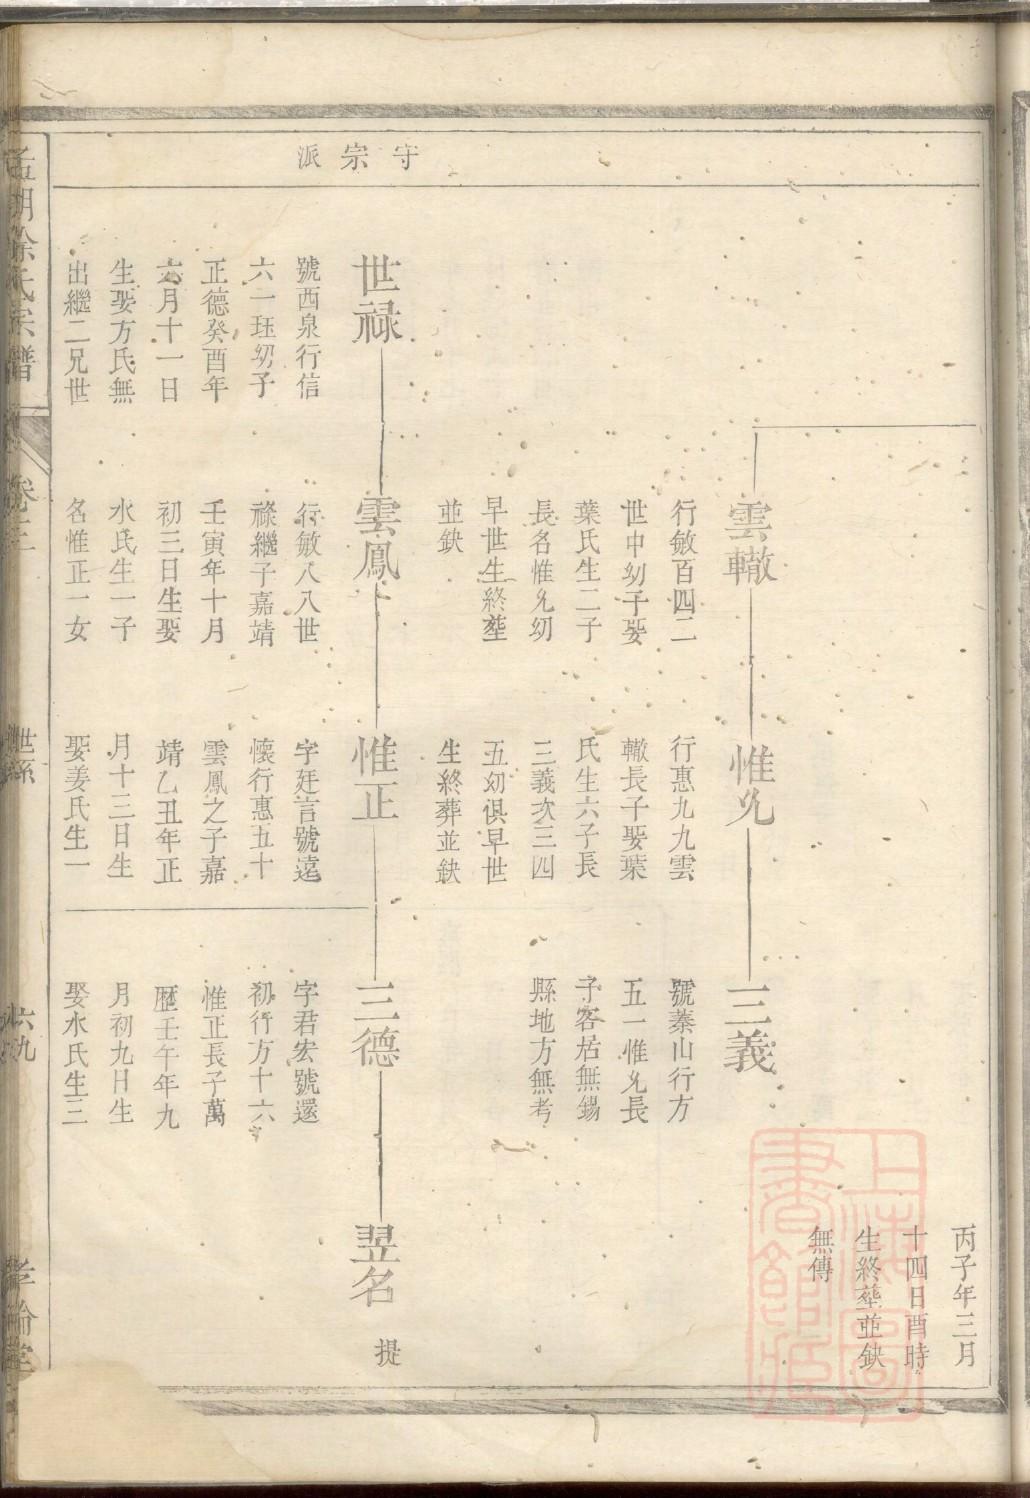 守宗派
丙子年三月
十四日酉時
生終塟並缺
無傳
雲轍
行敏百四二
世申幼子娶
葉氏生二子
長名惟允幼
早世生終塟
並缺
惟允
行惠九九雲
轍長子娶葉
氏生六子長
三義次三四
五幼俱早世
生終葬並缺
三義
號蓁山行方
五一惟允長
子客居無錫
縣地方無考
世祿
號西泉行信
六一珏幼子
正德癸酉年
六月十一日
生娶方氏無
出繼二兄世
雲鳳
行敏八八世
祿繼子嘉靖
壬寅年十月
初三日生娶
水氏生一子
名惟正一女
惟正
字廷言號遠
懷行惠五十
雲鳳之子嘉
靖乙丑年正
月十三日生
娶姜氏生一
三德
字君宏號還
初行方十六
惟正長子萬
歷壬午年九
月初九日生
娶水氏生三
翌名
提
徐氏宗譜
卷三
世系
六九
上海圖書館藏